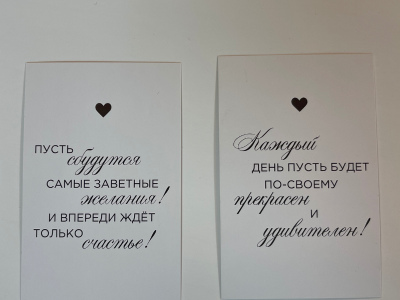 ПУСТЬ
сбудутся
САМЫЕ ЗАВЕТНЫЕ
желания!
И ВПЕРЕДИ ЖДЁТ
ТОЛЬКО
счастье!
Каждый
ДЕНЬ ПУСТЬ БУДЕТ
ПО-СВОЕМУ
прекрасен
И
удивителен!